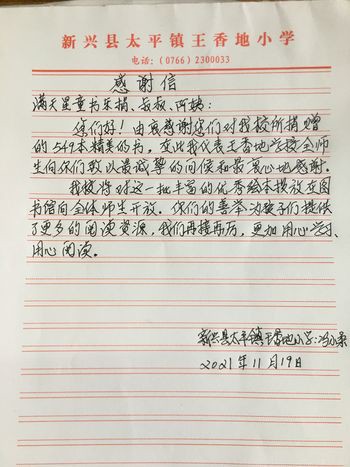 新兴县太平镇王香地小学
电话：(0766) 2300033
感谢信
满天星童书乐捐、叔叔、阿姨：
您们好！由衷感谢您们对我校所捐赠
的549本精美的书，在此我代表王香地学校全师
生向你们致以最诚挚的问候和最衷心地感谢。
我校将对这一批丰富的优秀绘本摆放在图
书馆向全体师生开放。你们的善举为孩子们提供
了更多的阅读资源，我们再接再厉，更加用心学习、
用心阅读。
新兴县太平镇王香地小学：冯小
2021年11月19日